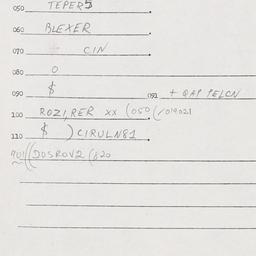 050 TEPERS
060 BLEXER
070 CIN
080 0
090 $ 091 + QAP PELCN
100 ROZI,RER XX (050 (/019021
110 $ ) CIRULN81
901 ((DOSROV2 (820